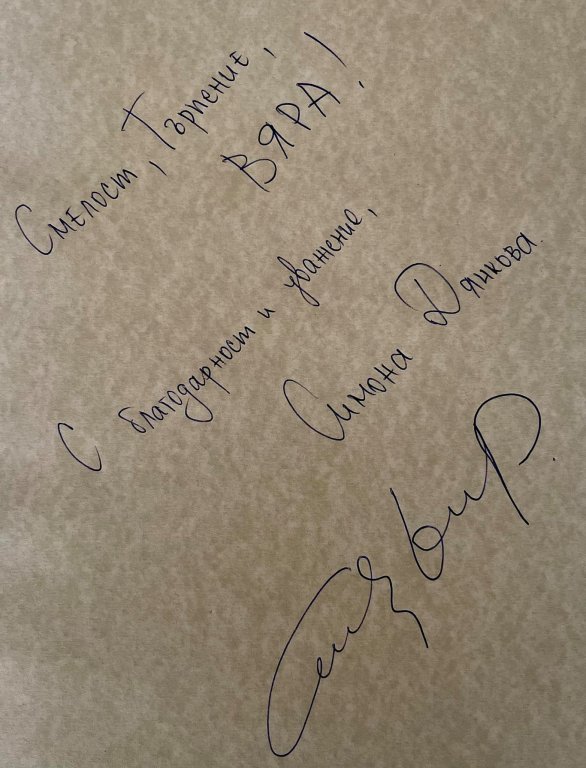 Смелост, Търпение,
ВЯРА!
С благодарност и уважение,
Симона Дянкова